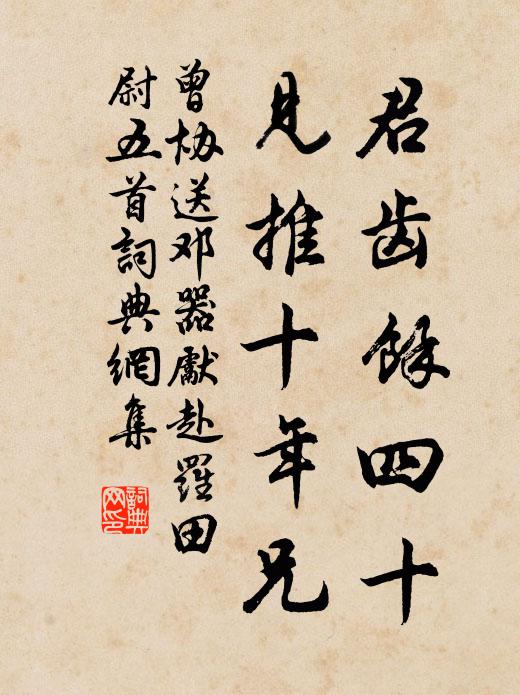 君齿馀四十
见推十年兄
曾协送邓器獻赴羅田
尉五首詞典網集
詞典网印